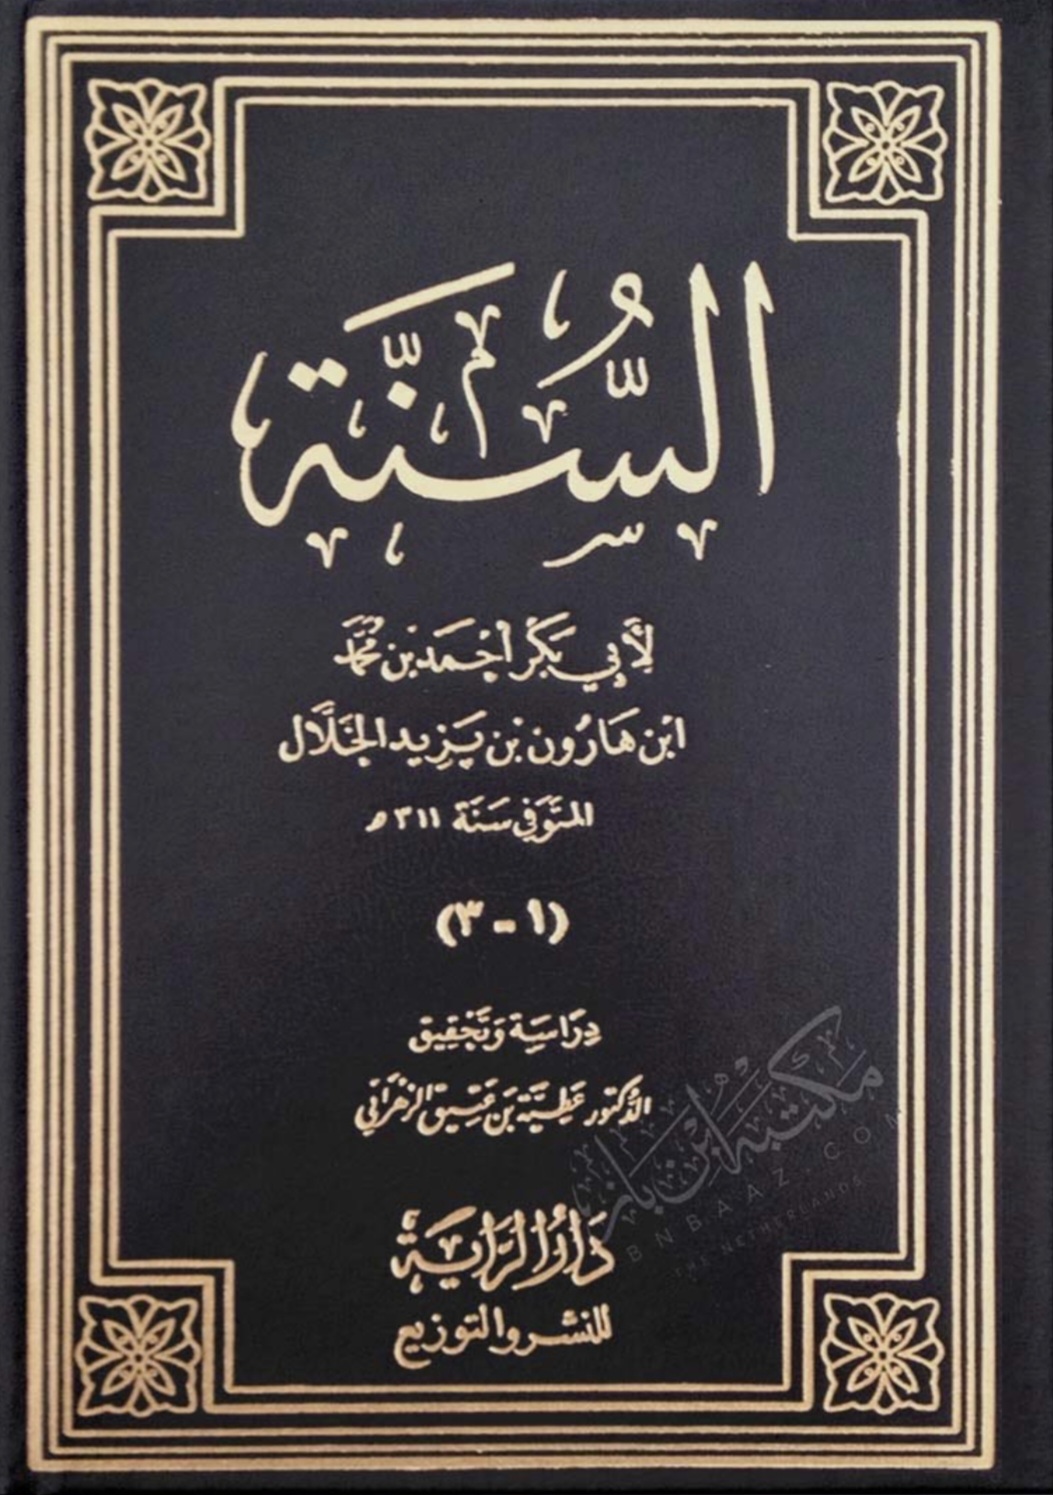 السُّنَّة
لِأَبِي بَكْر أَحْمَد بْن مُحَمَّد
ابْن هَارُون بْن يَزِيد الخَلَّال
المتَوَفَّى سَنَة ٣١١ هـ
(١ - ٣)
دِرَاسَة وَتَحْقِيق
الدُّكتور عَطِيَّة بْن عَتِيق الزَّهْرَانِي
دَارُ الرَّايَة
للنشر والتوزيع
مكتبة ابن باز
BNBAAZ.COM
THE NETHERLANDS